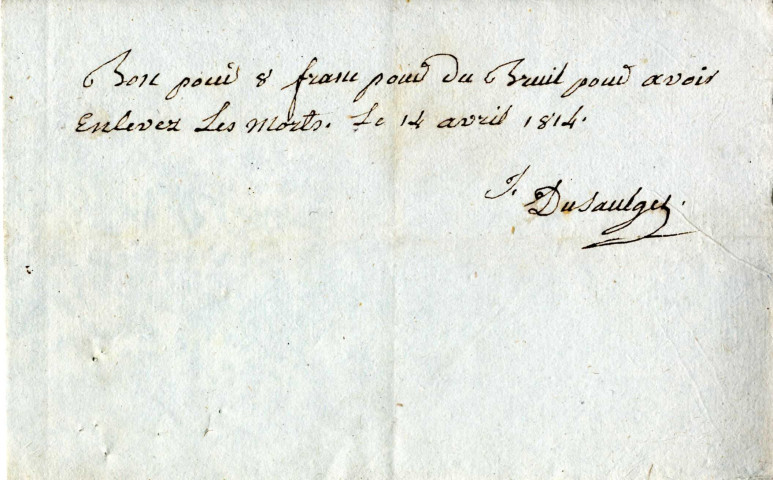 Bon pour 8 franc pour du Bruil pour avoir
Enlevez Les morts. Le 14 avril 1814.
J. DuSaulget.